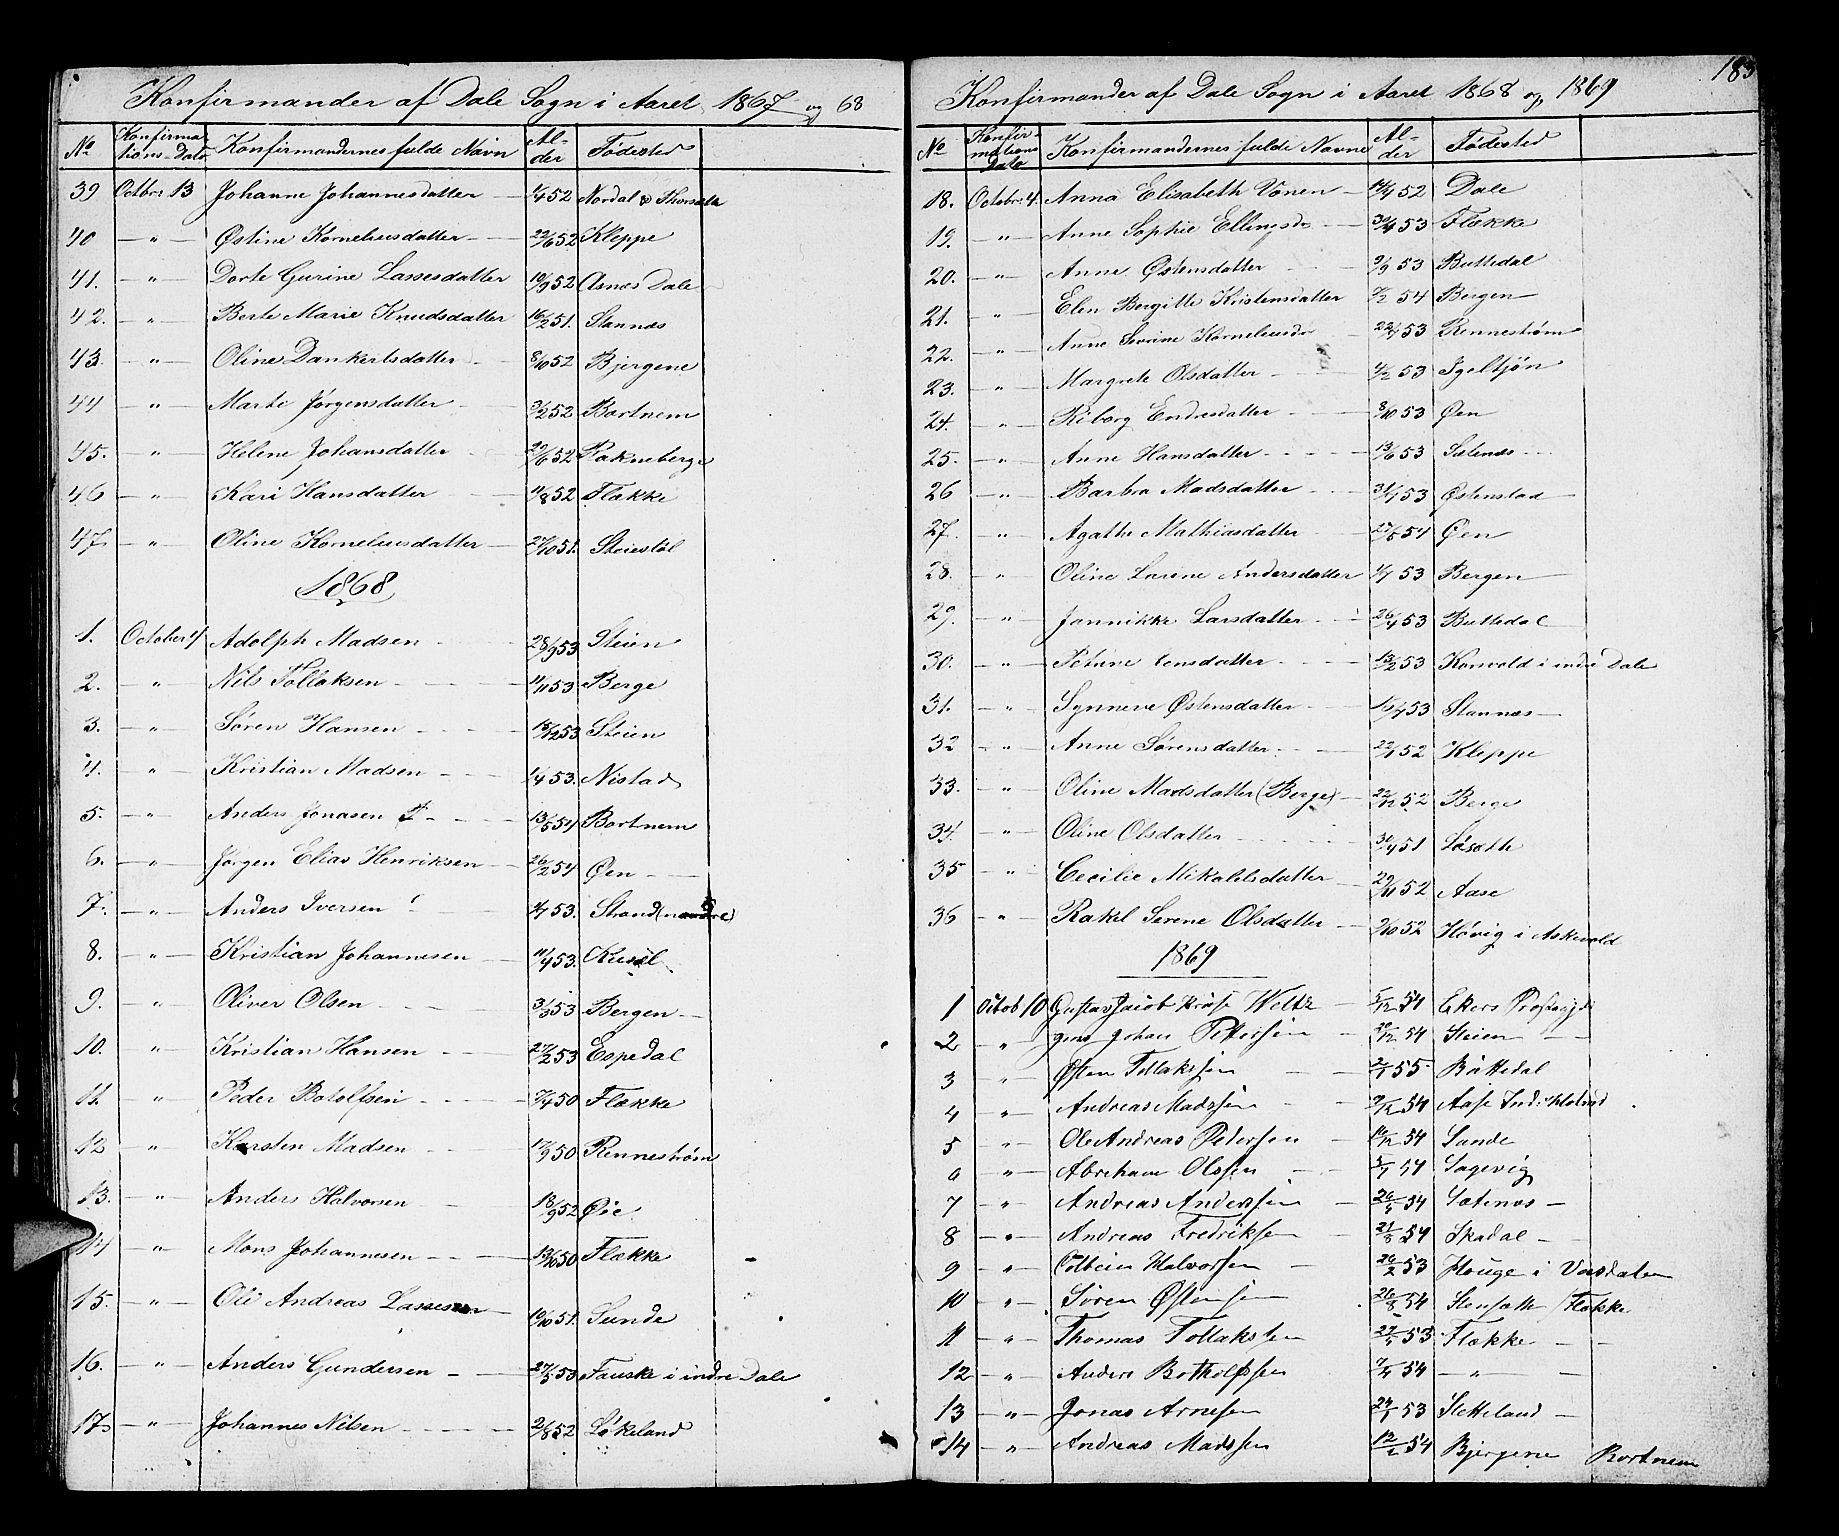 Konfirmander af Dale Sogn i Aaret 1867 og 68
No Konfirmations-Dato Konfirmandernes fulde Navn Alder Fødested
39 Octbr. 13 Johanne Johannesdatter 52 Nordal
40 " Østine Korneliusdatter 22/6 52 Kleppe
41. " Dorte Gurine Lassesdatter 10/9 52 Asnæs Dale
42. " Berte Marie Knudsdatter 16/2 51. Stannæs
43. " Oline Dankertsdatter 8/10 52 Bjergene
44 " Marte Jørgensdatter 3/2 52 Bortnem
45. " Helene Johansdatter 20/6 52 Rakneberge
46 " Kari Hansdatter 11/8 52 Flække
47. " Oline Korneliusdatter 27/10 51. Steiestøl
1868
1. October 4 Adolph Madsen 28/9 53 Steien
2. " Nils Tollaksen 11/11 53 Berge
3. " Søren Hansen 18/12 53 Steien
4. " Kristian Madsen 53. Nistad
5. " Anders Jonasen 13/5 54 Bortnem
6. " Jørgen Elias Henriksen 26/2 54 Øen
7. " Anders Iversen 53. Strand
8. " Kristian Johannesen 53.
9. " Oliver Olsen 31/3 53 Bergen
10. " Kristian Hansen 27/2 53 Espedal
11. " Peder Botolfsen 7/4 50 Flække
12 " Karsten Madsen 17/9 50 Rennestrøm
13. " Anders Halvorsen 18/9 52 Øie
14 " Mons Johannesen 13/10 50 Flække
15. " Ole Andreas Lassesen 19/10 51. Sunde
16. " Anders Gundersen 27/5 53 Fauske i indre Dale
17. " Johannes Nilsen 21/8 52 Løkeland
183
Konfirmander af Dale Sogn i Aaret 1868 og 1869
No Konfirmations Dato Konfirmandernes fulde Navne Alder Fødested
18. Octobr. 4 Anna Elisabeth Vonen 52 Dale
19. " Anne Sophie Ellingsdr 30/4 53 Flække
20. " Anne Østensdatter 9/9 53 Buttedal
21. " Elen Bergitte Kristensdatter 7/2 54 Bergen
22. " Anne Severine Korneliusdr 53 Rennestrøm
23. " Margrete Olsdatter 4/2 53 Igeltjøn
24. " Endresdatter 8/10 53 Øen
25. " Anne Hansdatter 13/6 53 Sætenæs
26 " Barbra Madsdatter 53 Østenstad
27. " Agathe Mathiasdatter 27/5 54 Øen
28. " Oline Larine Andersdatter 53 Bergen
29. " Jannikke Larsdatter 53 Buttedal
30. " Jensdatter 13/2 53 Korsvold i indre Dale
31. " Synneve Østensdatter 53 Stannæs
32 " Anne Sørensdatter 52 Kleppe
33. " Oline Madsdatter (Berge) 22/12 52 Berge
34. " Oline Olsdatter 51
35 " Cecilie Mikalelsdatter 29/11 52 Aase
36 " Rakel Serene Olsdatter 2/10 52 Høvig i Askevold
1869
1 Octob 10 Gustav Jacob 5/12 54 Ekers Præstegjd
2 " Jens Johan Pettersen 54 Steien
3 " Østen Tollakssen 55 Buttedal
4 " " Andreas Madssen 54 Aase
5 " Ole Andreas Pedersen 54 Sande
6 " Abraham Olssen 54 Sagevig
7 " Andreas Anderssen 54 Sætenæs
8 " Andreas Fredriksen 21/8 54 Skadal
9 " Halvorsen 26/2 53 Houge i
10 " Søren Østensen 26/8 54 / Flække
11 " Thomas Tollakssen 53 Flække
12 " Anders Botholfssen 54 "
13 " Jonas Arnesen 53 Sletteland
14 " Andreas Madssen 54 Bjergene Bortnem